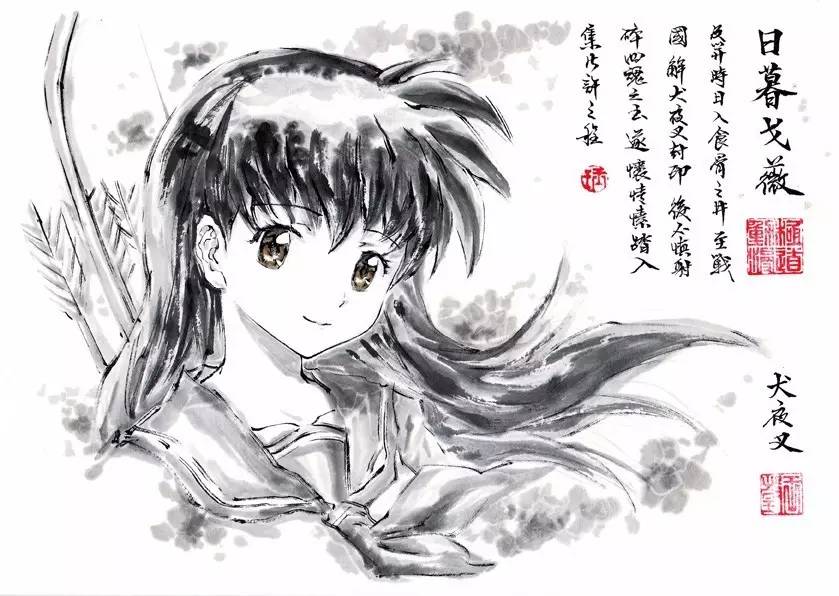 日暮戈薇
時日入食骨之井 至戰
國 解犬夜叉封印 後不慎射
碎四魂之玉 遂懷情愫踏入
集片許之程
犬夜叉